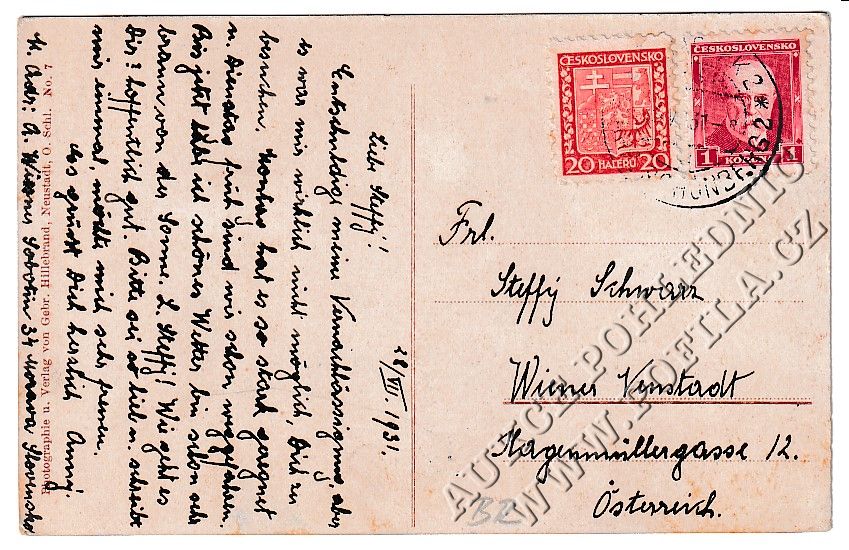 28/VI. 1931.
Liebe Steffy!
Entschuldige meine Vernachlässigung, aber
es war mir wirklich nicht möglich, Dich zu
besuchen. Montag hat es so stark geregnet
u. Dienstag früh sind wir schon weggefahren.
Bis jetzt ich schönes Wetter bin schon sehr
braun von der Sonne. L. Steffy! Wie geht es
Dir? hoffentlich gut. Bitte sei so lieb u. schreibe
mir einmal, möchte mich sehr freuen.
Es grüsst Dich herzlich Anny.
M. Adr.: A. Wiesner Sobotin 34 Morava Slovensko
Photographie u. Verlag von Gebr. Hillebrand, Neustadt, O. Schl. No. 7
ČESKOSLOVENSKO
20 HALÉŘŮ 20
ČESKOSLOVENSKO
1 1
Frl.
Steffy Schwarz
Wiener Neustadt
Hagenmüllergasse 12.
Österreich.
BZ
AUKCE POHLEDNIC
WWW.POFILA.CZ